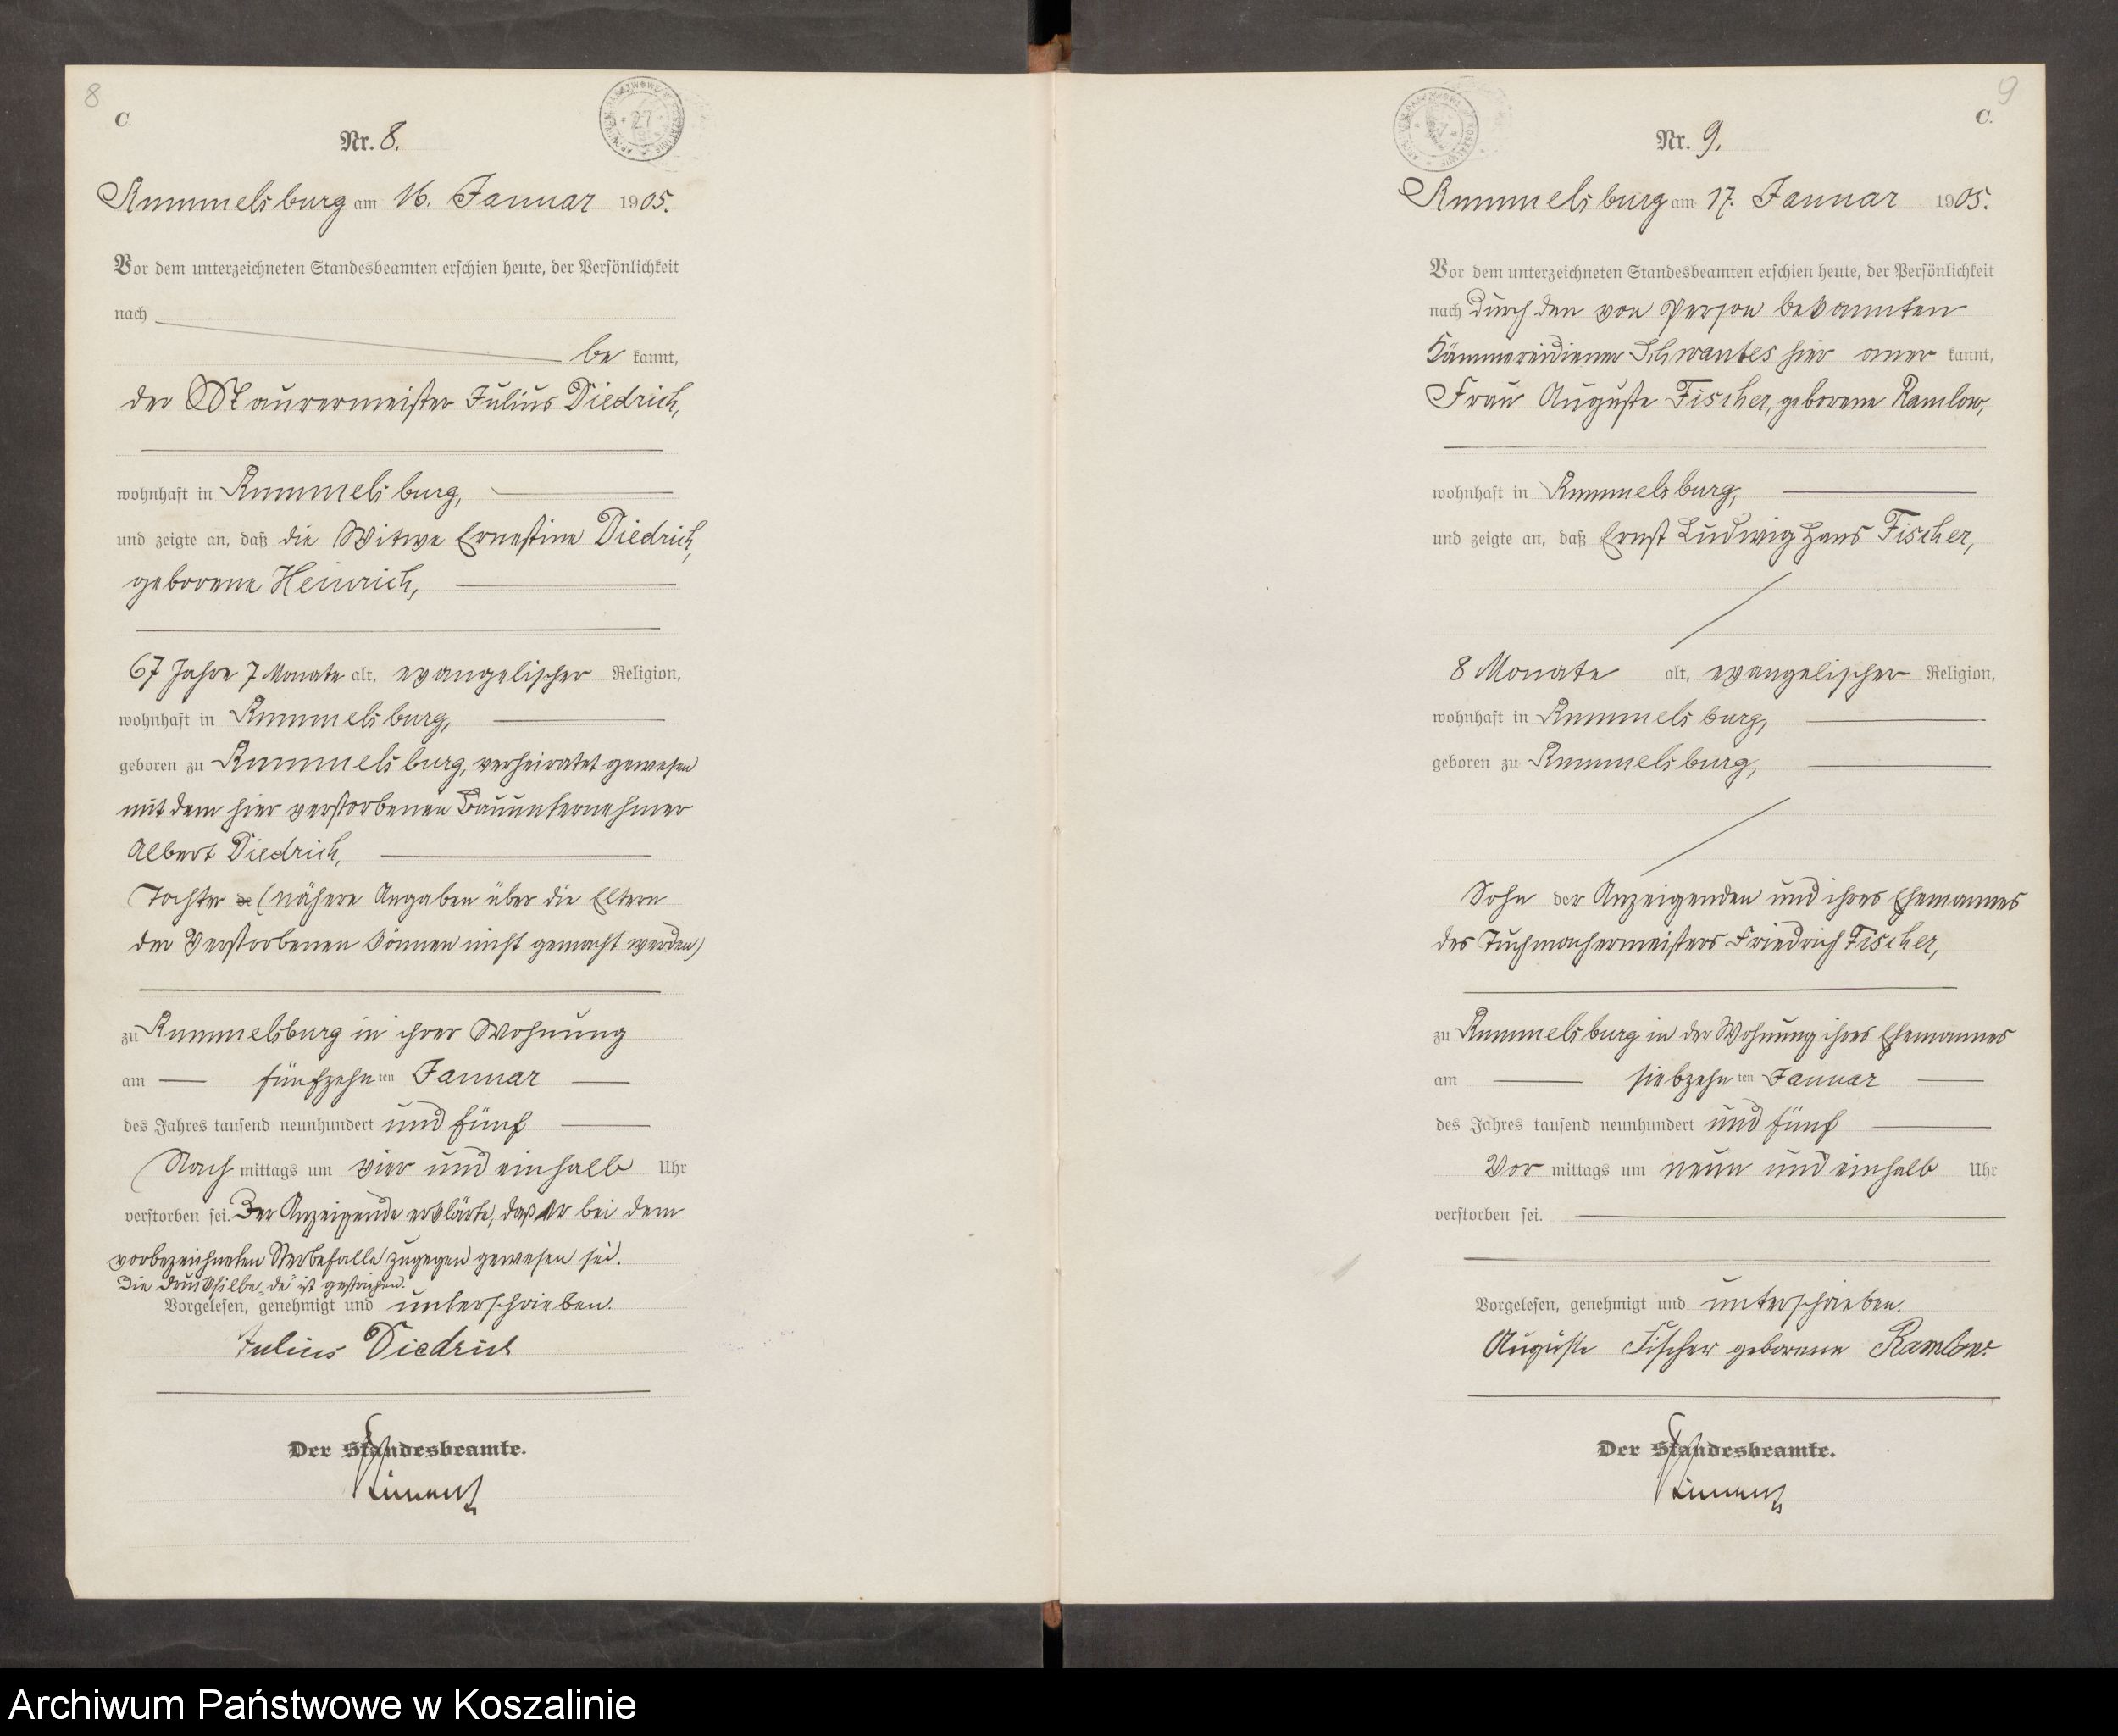 8
C.
Nr. 8.
27
Rummelsburg am 16. Januar 1905.
Vor dem unterzeichneten Standesbeamten erschien heute, der Persönlichkeit
nach
be kannt,
der Maurermeister Julius Diedrich,
wohnhaft in Rummelsburg,
und zeigte an, daß die Witwe Ernestine Diedrich,
geborene Heinrich,
67 Jahre 7 Monate alt, evangelischer Religion,
wohnhaft in Rummelsburg,
geboren zu Rummelsburg, verheiratet gewesen
mit dem hier verstorbenen Bauunternehmer
Albert Diedrich,
Tochter de (nähere Angaben über die Eltern
der Verstorbenen können nicht gemacht werden)
zu Rummelsburg in ihrer Wohnung
am fünfzehn ten Januar
des Jahres tausend neunhundert und fünf
Nach mittags um vier und einhalb Uhr
verstorben sei. Der Anzeigende erklärte, daß er bei dem
vorbezeichneten Sterbefalle zugegen gewesen sei.
Die Drucksilbe „de“ ist gestrichen.
Vorgelesen, genehmigt und unterschrieben.
Julius Diedrich
Der Standesbeamte.
9
C.
Nr. 9.
Rummelsburg am 17. Januar 1905.
Vor dem unterzeichneten Standesbeamten erschien heute, der Persönlichkeit
nach durch den von Person bekannten
Kämmereidiener Schwantes hier aner kannt,
Frau Auguste Fischer, geborene Ramlow,
wohnhaft in Rummelsburg,
und zeigte an, daß Ernst Ludwig Hans Fischer,
8 Monate alt, evangelischer Religion,
wohnhaft in Rummelsburg,
geboren zu Rummelsburg,
Sohn der Anzeigenden und ihres Ehemannes
des Tuchmachermeisters Friedrich Fischer,
zu Rummelsburg in der Wohnung ihres Ehemannes
am siebzehn ten Januar
des Jahres tausend neunhundert und fünf
Vor mittags um neun und einhalb Uhr
verstorben sei.
Vorgelesen, genehmigt und unterschrieben.
Auguste Fischer geborene Ramlow.
Der Standesbeamte.
Archiwum Państwowe w Koszalinie